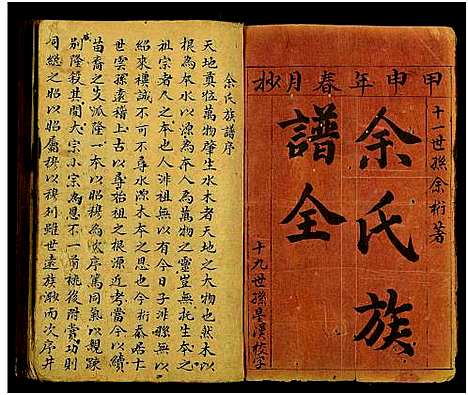 甲申年春月抄
十一世孫余桁著
余氏族
譜全
十九世孫吳漢校字
余氏族譜序
天地奠位萬物肇生水木者天地之大物也然木以
根為本水以源為本人為萬物之靈豈無托生本之
祖宗者人之本也人非祖無以有今日子非祖無以
紹來禩誠不可不尋水源木本之思也今桁忝居十
世雲孫遠稽上古以尋始祖之根源近考當今以續
苗裔之支派隆一本以昭穆為次序篤同氣以親疎
別隆殺其間大宗小宗為恩不一前祧後附賞功則
同總之昭以昭屬穆以穆列雖世遠族渺而次序井